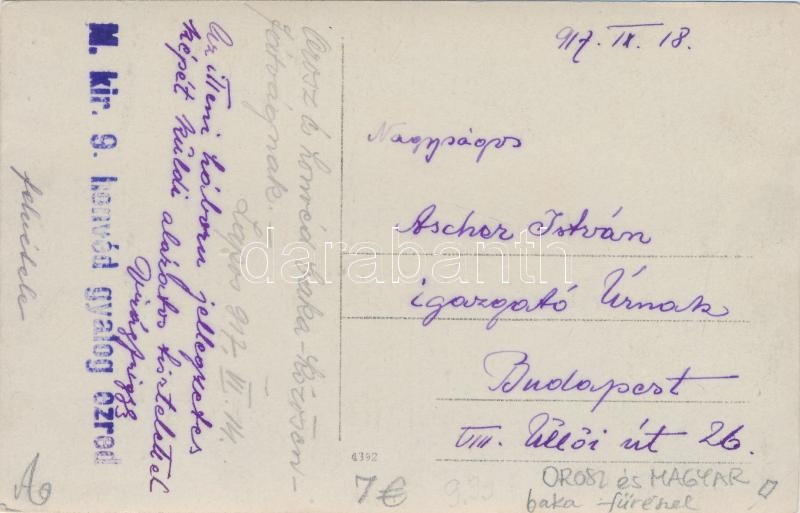 917. IX. 18.
Nagyságos
Ascher István
igazgató Úrnak
Budapest
VIII. Üllői út 26.
Orosz és honvéd baka közösen
favágnak.
917. VI. 14.
Az itteni háború jellegzetes
képét küldi alázatos tisztelettel
M. kir. 9. honvéd gyalog ezred
felvétele
4392
7€
OROSZ és MAGYAR
baka fűrészel
darabanth